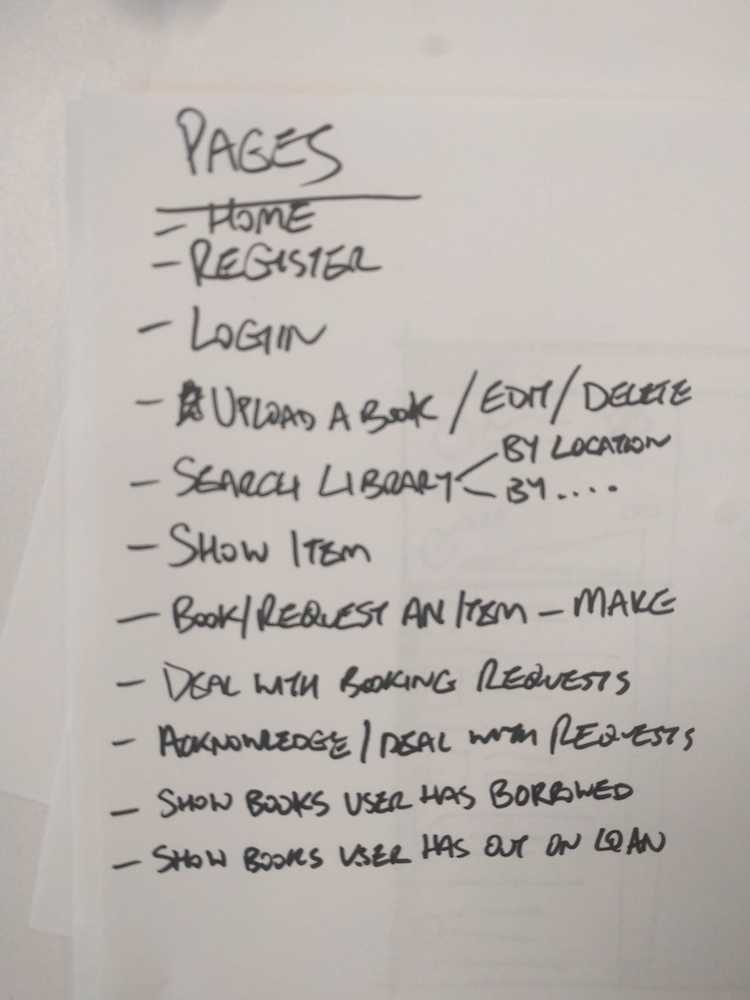 PAGES
- HOME
- REGISTER
- LOGIN
- UPLOAD A BOOK / EDIT / DELETE
- SEARCH LIBRARY < BY LOCATION
BY....
- SHOW ITEM
- BOOK/REQUEST AN ITEM - MAKE
- DEAL WITH BOOKING REQUESTS
- ACKNOWLEDGE / DEAL WITH REQUESTS
- SHOW BOOKS USER HAS BORROWED
- SHOW BOOKS USER HAS OUT ON LOAN